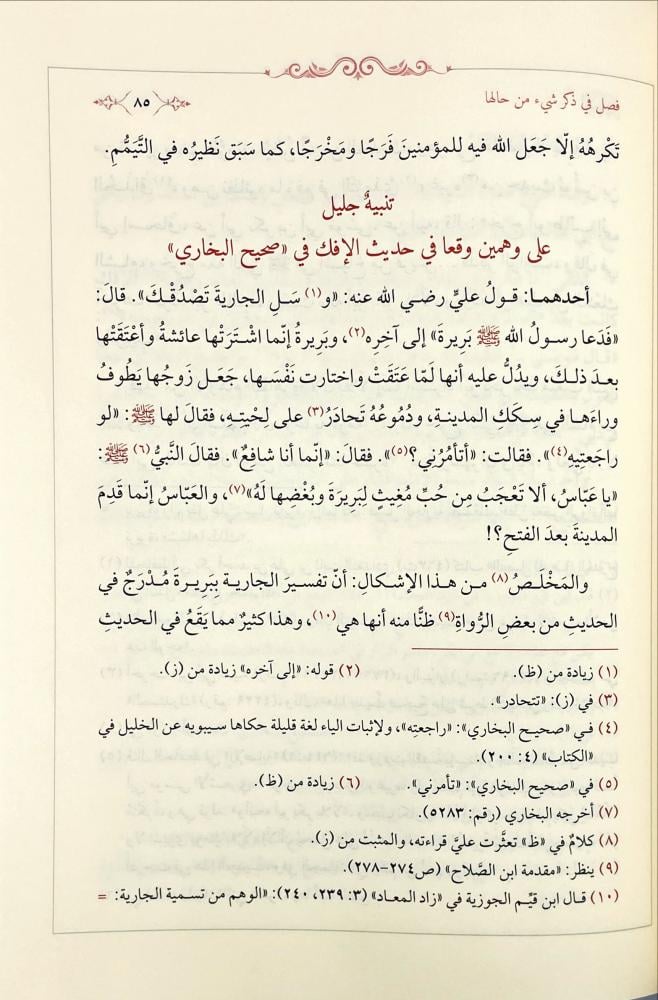 فصل في ذكر شيء من حالها
٨٥
تَكْرهُهُ إلّا جَعَل الله فيه للمؤمنينَ فَرَجًا ومَخْرَجًا، كما سَبَق نَظيرُه في التَّيَمُّمِ.
تنبيهٌ جليل
على وهمين وقعا في حديث الإفك في «صحيح البخاري»
أحدهمـا: قـولُ عليٍّ رضـي الله عنه: «و(١) سَـلِ الجاريةَ تَصْدُقْـكَ». قالَ:
«فَدَعا رسـولُ الله ﷺ بَرِيرةَ» إلى آخِرِه(٢)، وبَرِيرةُ إنّما اشْـتَرَتْها عائشةُ وأعْتَقَتْها
بعدَ ذلـكَ، ويدُلُّ عليه أنها لَمّا عَتَقَتْ واختارت نَفْسَـها، جَعَـل زَوجُها يَطُوفُ
وراءَهـا في سِـكَكِ المدينـةِ، ودُمُوعُهُ تَحادَرُ(٣) على لِحْيتِـهِ، فقالَ لها ﷺ: «لو
راجَعَتِيهِ(٤)». فقالت: «أتأمُرُنِي؟(٥)». فقالَ: «إنّمـا أنا شافِعٌ». فقالَ النَّبيُّ(٦) ﷺ:
«يا عَبّاسُ، ألا تَعْجَبُ مِن حُبِّ مُغِيثٍ لِبَرِيرَةَ وبُغْضِها لَهُ»(٧)، والعَبّاسُ إنّما قَدِمَ
المدينةَ بعدَ الفتحِ؟!
والمَخْلَـصُ(٨) مـن هـذا الإشـكالِ: أنّ تفسـيرَ الجاريـةِ بِبَرِيـرةَ مُدْرَجٌ في
الحديثِ من بعضِ الرُّواةِ(٩) ظنًّا منه أنها هي(١٠)، وهذا كثيرٌ مما يَقَعُ في الحديثِ
(١) زيادة من (ظ). (٢) قوله: «إلى آخره» زيادة من (ز).
(٣) في (ز): «تتحادر».
(٤) فـي «صحيـح البخاري»: «راجعتِه»، ولإثبات الياء لغة قليلة حكاها سيبويه عن الخليل في
«الكتاب» (٤: ٢٠٠).
(٥) في «صحيح البخاري»: «تأمرني». (٦) زيادة من (ظ).
(٧) أخرجه البخاري (رقم: ٥٢٨٣).
(٨) كلامٌ في «ظ» تعثَّرت عليَّ قراءته، والمثبت من (ز).
(٩) ينظر: «مقدمة ابن الصَّلاح» (ص٢٧٤–٢٧٨).
(١٠) قـال ابن قيِّـم الجوزية في «زاد المعاد» (٣: ٢٣٩، ٢٤٠): «الوهم من تسمية الجارية: =